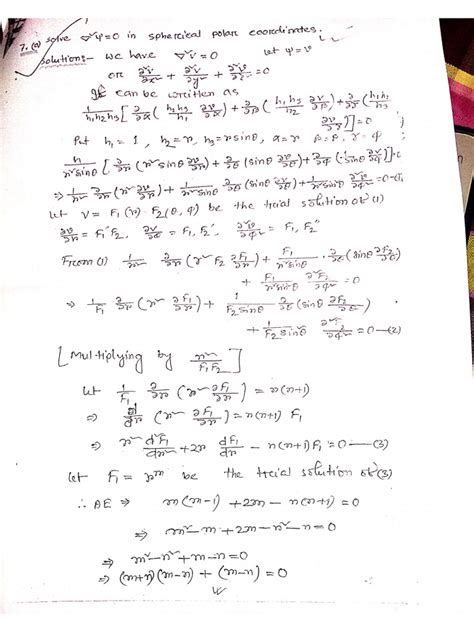 7. (a) solve ∇²ψ=0 in spherical polar coordinates.
Solution:- we have ∇²v=0 let ψ=v
or ∂²v/∂x² + ∂²v/∂y² + ∂²v/∂z² =0
It can be written as
1/h₁h₂h₃ [∂/∂α (h₂h₃/h₁ ∂v/∂α) + ∂/∂β (h₁h₃/h₂ ∂v/∂β) + ∂/∂γ (h₁h₂/h₃
∂v/∂γ)]=0
Put h₁ = 1, h₂=r, h₃=r sinθ, α=r β=θ, γ=φ
[∂/∂r (r² sinθ ∂v/∂r) + ∂/∂θ (sinθ ∂v/∂θ) + ∂/∂φ (1/sinθ ∂v/∂φ)]=0
⇒ 1/r² ∂/∂r (r² ∂v/∂r) + 1/r² sinθ ∂/∂θ (sinθ ∂v/∂θ) + 1/r² sin²θ ∂²v/∂φ² =0-(1)
Let v= F₁(r) F₂(θ, φ) be the trial solution of (1)
∂v/∂r = F₁'F₂, ∂v/∂θ = F₁ F₂', ∂²v/∂φ² = F₁ F₂''
From (1) 1/r² ∂/∂r (r² F₂ ∂F₁/∂r) + F₁/r² sinθ · ∂/∂θ (sinθ ∂F₂/∂θ)
+ F₁/r² sin²θ ∂²F₂/∂φ² =0
⇒ 1/F₁ ∂/∂r (r² ∂F₁/∂r) + 1/F₂ sinθ ∂/∂θ (sinθ ∂F₂/∂θ)
+ 1/F₂ sin²θ ∂²F₂/∂φ² =0-(2)
[Multiplying by r²/F₁F₂]
Let 1/F₁ ∂/∂r (r² ∂F₁/∂r) = n(n+1)
⇒ d/dr (r² ∂F₁/∂r) = n(n+1) F₁
⇒ r² d²F₁/dr² + 2r dF₁/dr - n(n+1)F₁ =0 -(3)
Let F₁ = r^m be the trial solution of (3)
∴ AE ⇒ m(m-1) +2m - n(n+1) =0
⇒ m²-m+2m-n²-n=0
⇒ m²-n²+m-n=0
⇒ (m+n)(m-n) + (m-n) =0